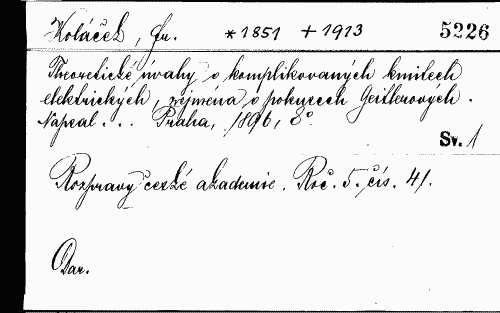 Koláček, Fr. *1851 +1913 5226
Theoretické úvahy o komplikovaných kmitech
elektrických, zejména o pokusech Geitlerových.
Napsal... Praha, 1896, 8°.
Sv. 1
Rozpravy české akademie. Roč. 5. čís. 41.
Dar.